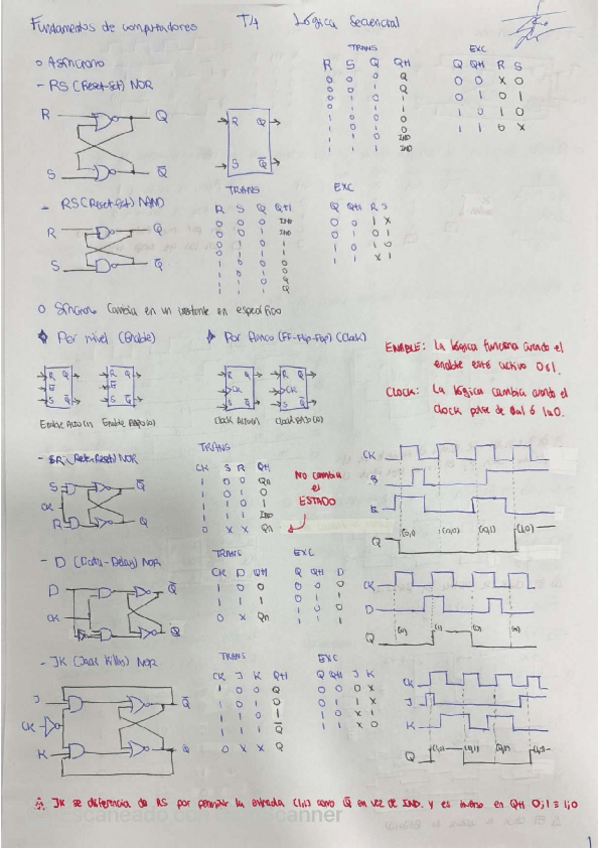 Fundamentos de computadores T4 Lógica Secuencial
o Asíncrono
- RS (Reset-Set) NOR
TRANS
R S Q Q+1
0 0 0 Q
0 0 1 Q
0 1 0 1
0 1 1 1
1 0 0 0
1 0 1 0
1 1 0 IND
1 1 1 IND
EXC
Q Q+1 R S
0 0 X 0
0 1 0 1
1 0 1 0
1 1 0 X
R Q
S Q̅
R Q
S Q̅
- RS (Reset-Set) NAND
TRANS
R S Q Q+1
0 0 0 IND
0 0 1 IND
0 1 0
0 1 1
1 0 0
1 0 1
1 1 0 Q
1 1 1 Q
EXC
Q Q+1 R S
0 0 1 X
0 1 0 1
1 0 1 0
1 1 X 1
R Q
S Q̅
o Síncrono Cambia en un instante en específico
Por nivel (Enable)
Por flanco (FF-Flip-Flop) (Clock)
R Q
E
S Q̅
R Q
E
S Q̅
R Q
CK
S Q̅
R Q
CK
S Q̅
Enable Alto (1) Enable Bajo (0)
Clock Alto (1) Clock Bajo (0)
ENABLE: La lógica funciona cuando el
enable esté activo 0 o 1.
CLOCK: La lógica cambia cuando el
clock pase de 0 a 1 ó 1 a 0.
- SR (Set-Reset) NOR
TRANS
CK S R Q+1
1 0 0 Qn
1 0 1 0
1 1 0 1
1 1 1 IND
0 X X Qn
No cambia
el
ESTADO
S Q̅
CK
R Q
CK
S
R
Q
(0,1) (0,0) (0,1) (1,0)
- D (Data-Delay) NOR
TRANS
CK D Q+1
1 0 0
1 1 1
0 X Qn
EXC
Q Q+1 D
0 0 0
0 1 1
1 0 0
1 1 1
D Q̅
CK
Q
CK
D
Q
(0) (1) (0) (0)
- JK (Jack Kilby) NOR
TRANS
CK J K Q+1
1 0 0 Q
1 0 1 0
1 1 0 1
1 1 1 Q̅
0 X X Q
EXC
Q Q+1 J K
0 0 0 X
0 1 1 X
1 0 X 1
1 1 X 0
J Q̅
CK
K Q
CK
J
K
Q
JK se diferencia de RS por permitir la entrada (1,1) como Q̅ en vez de IND. y es
Scanner
1